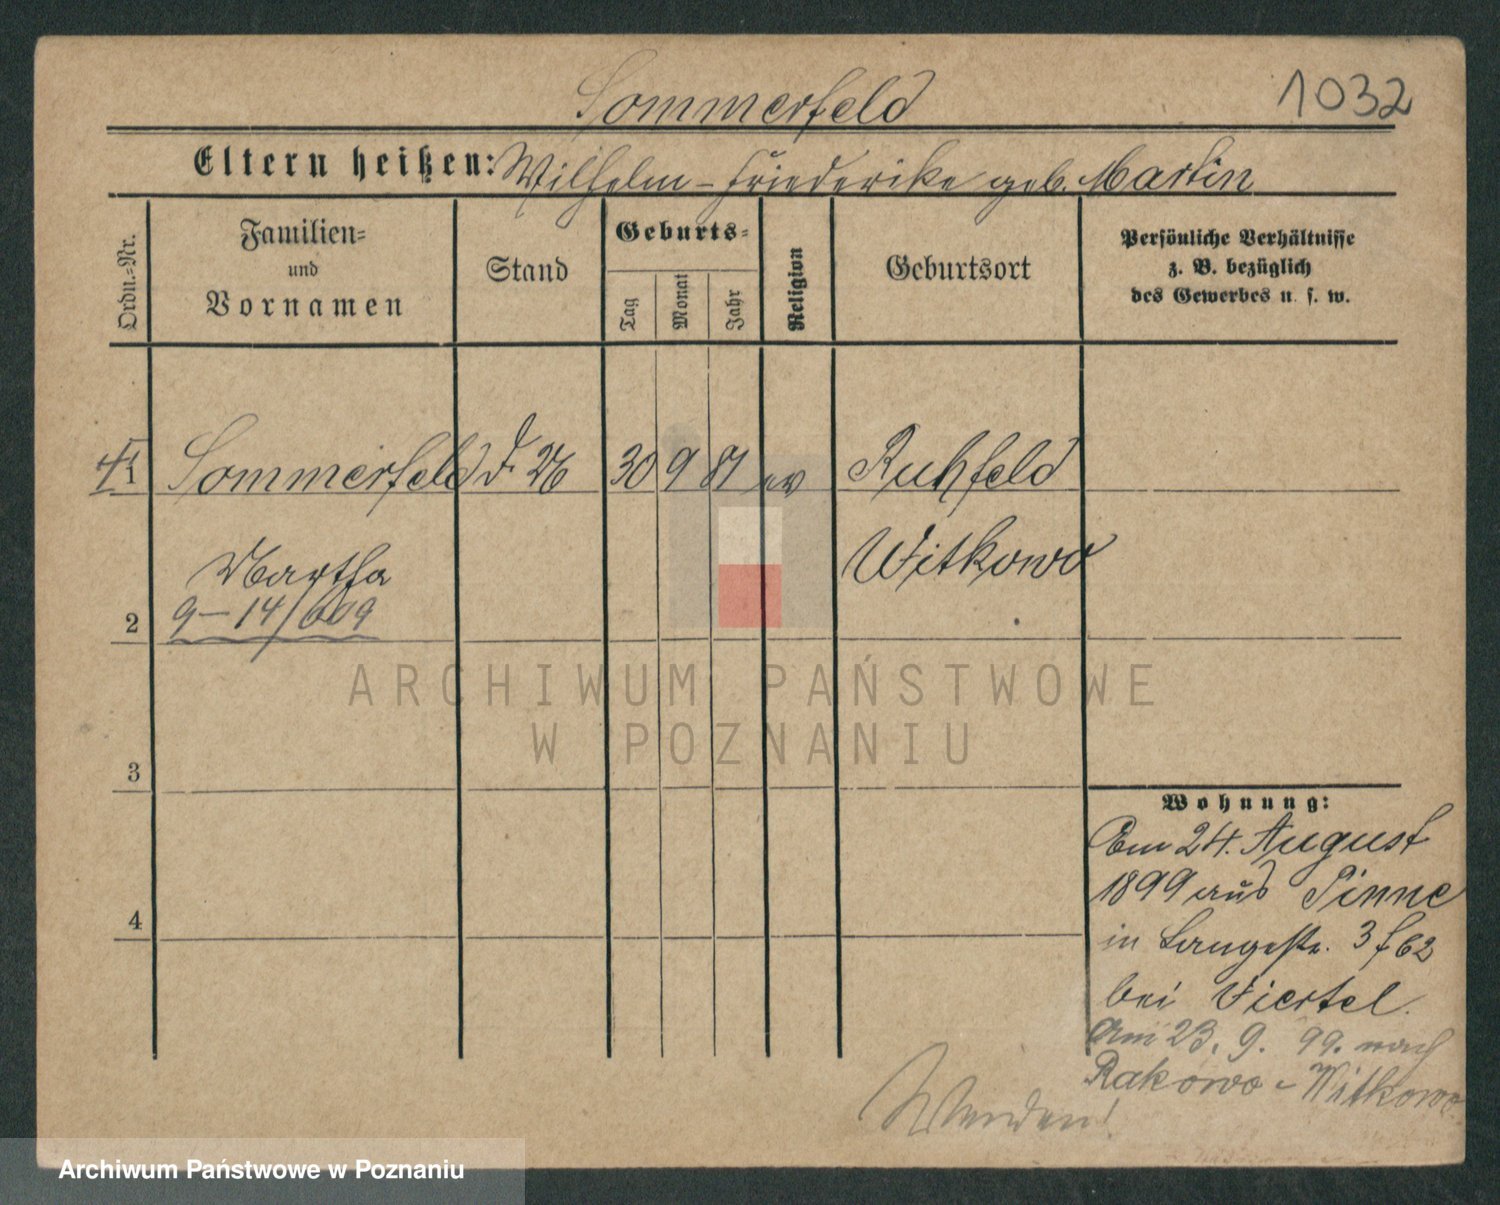 1032
Sommerfeld
Eltern heißen: Wilhelm – Friederike geb. Martin
Ordn.=Nr.
Familien=
und
Vornamen
Stand
Geburts=
Tag
Monat
Jahr
Religion
Geburtsort
Persönliche Verhältnisse
z. B. bezüglich
des Gewerbes u. s. w.
Sommerfeld d. 30 9 81 ev Ruhfeld
Martha Witkowo
9–14/609
2
ARCHIWUM PAŃSTWOWE
W POZNANIU
3
Wohnung:
Am 24. August
1899 aus Pinne
in Langestr. 3 f 62
bei Viertel.
Am 23. 9. 99. nach
Rakowo - Witkowo
4
Wenden!
Archiwum Państwowe w Poznaniu